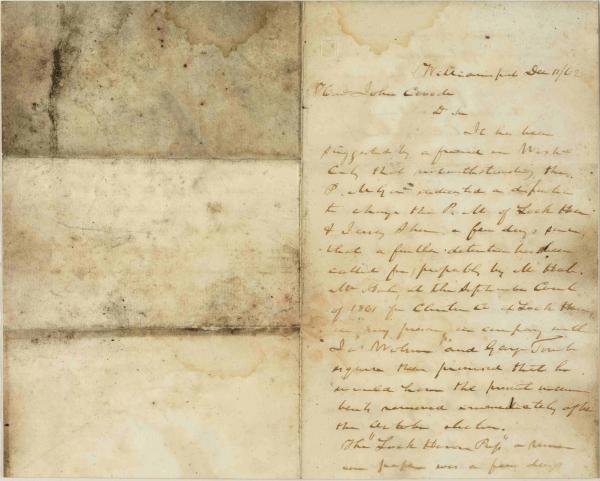 Williamsport Dec 11/62
Hon John Covode
D Sir
It has been
suggested by a friend in Wash
City that notwithstanding the
P. M. Gen indicated a
to change the P. M. of Lock Haven
& Jersey Shore a few days since
that a further detention has been
called for, probably by Mr Hale.
Mr Hale, at the September Court
of 1861 for Clinton Co at Lock Haven
in my presence in company with
and Geo
esquire then promised that he
would have the present incum
bents removed immediately after
the October election.
The "Lock Haven Press" a
paper was a few days